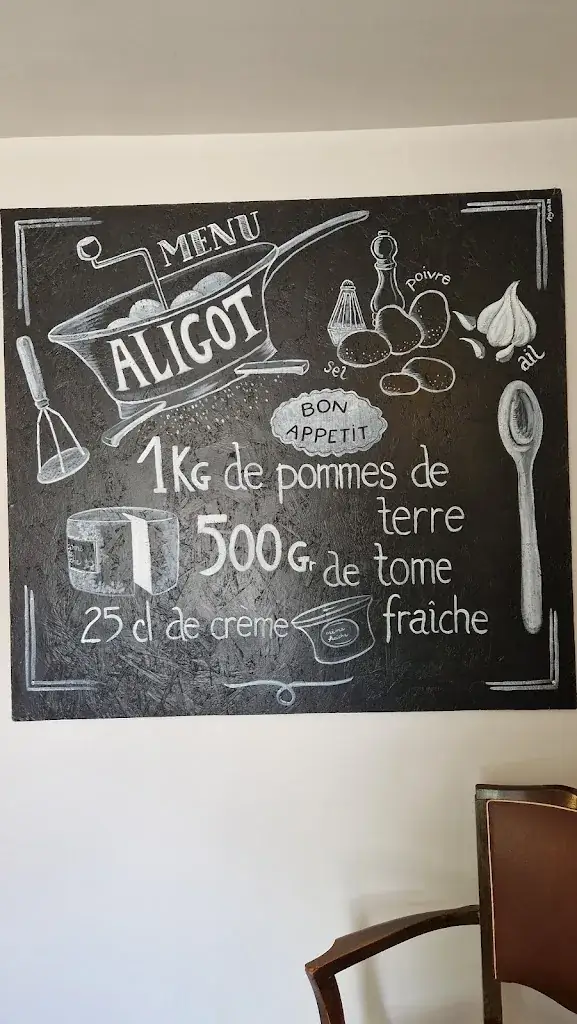 MENU
ALIGOT
poivre
sel
ail
BON
APPETIT
1KG de pommes de
terre
500Gr de tome
25 cl de crème fraîche